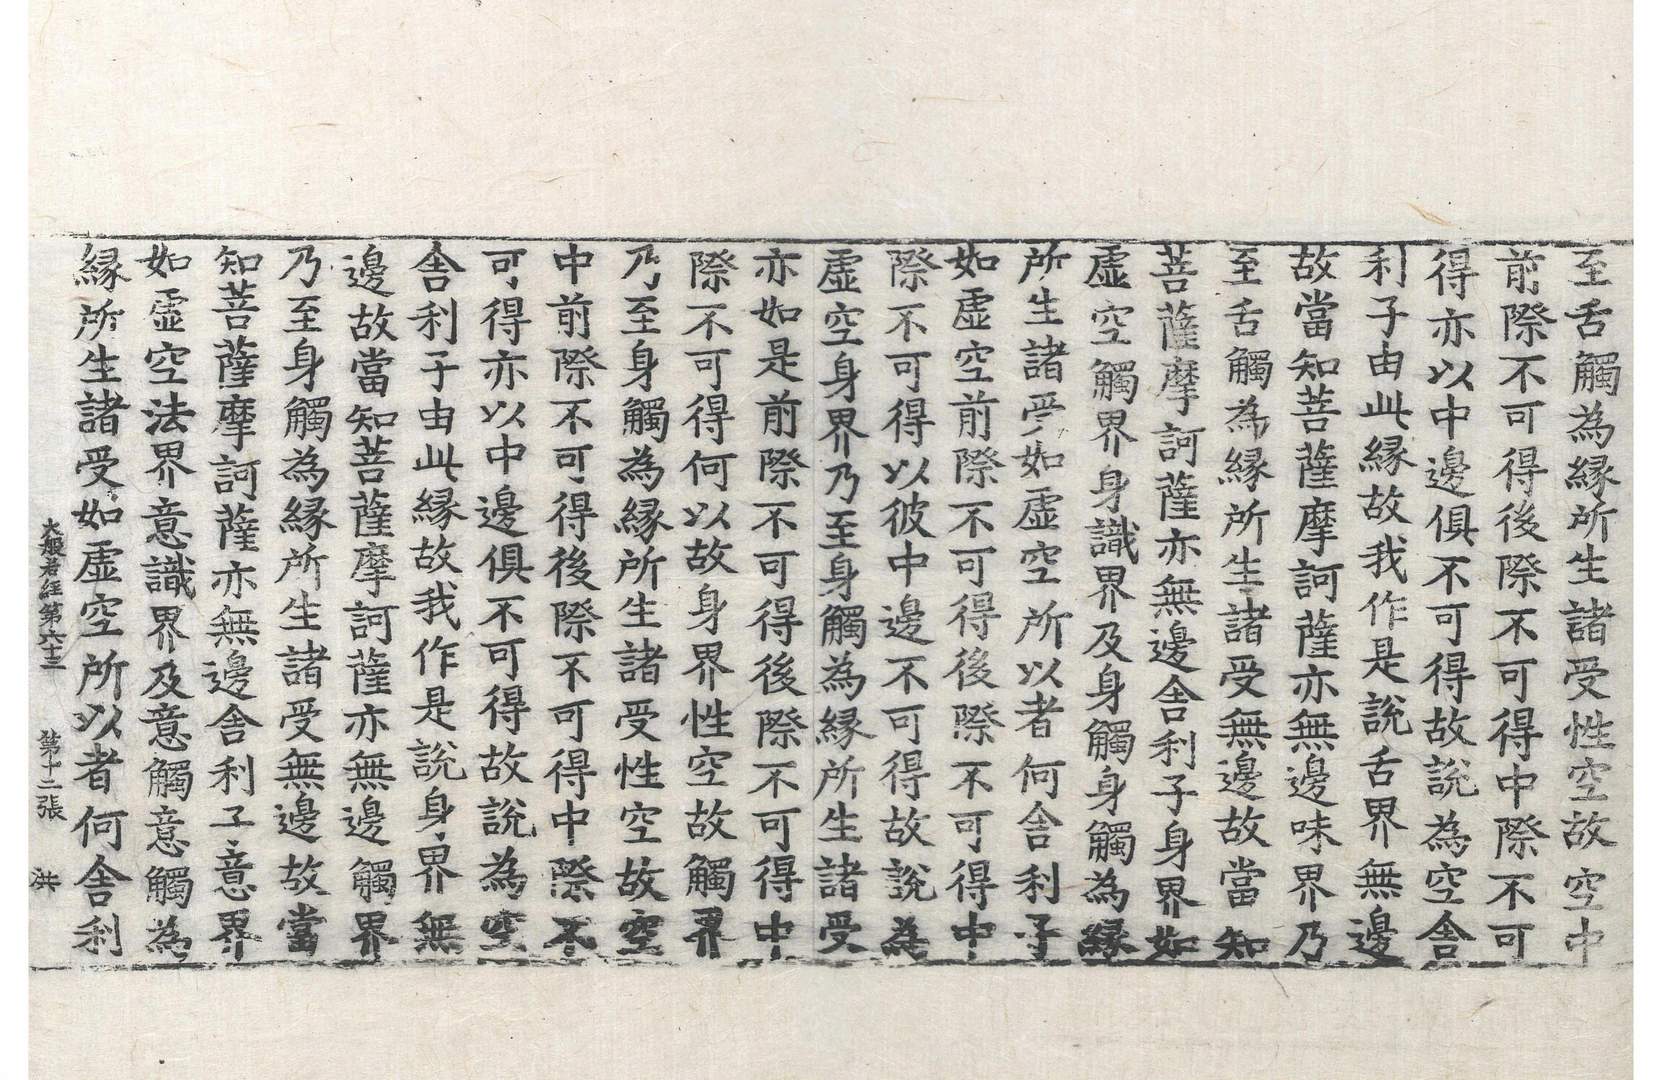 至舌觸為縁所生諸受性空故空中
前際不可得後際不可得中際不可
得亦以中邊俱不可得故說為空舎
利子由此縁故我作是說舌界無邊
故當知菩薩摩訶薩亦無邊味界乃
至舌觸為縁所生諸受無邊故當知
菩薩摩訶薩亦無邊舎利子身界如
虛空觸界身識界及身觸身觸為縁
所生諸受如虛空所以者何舎利子
如虛空前際不可得後際不可得中
際不可得以彼中邊不可得故說為
虛空身界乃至身觸為縁所生諸受
亦如是前際不可得後際不可得中
際不可得何以故身界性空故觸界
乃至身觸為縁所生諸受性空故空
中前際不可得後際不可得中際不
可得亦以中邊俱不可得故說為空
舎利子由此縁故我作是說身界無
邊故當知菩薩摩訶薩亦無邊觸界
乃至身觸為縁所生諸受無邊故當
知菩薩摩訶薩亦無邊舎利子意界
如虛空法界意識界及意觸意觸為
縁所生諸受如虛空所以者何舎利
大般若経第六十三　第十二張　洪